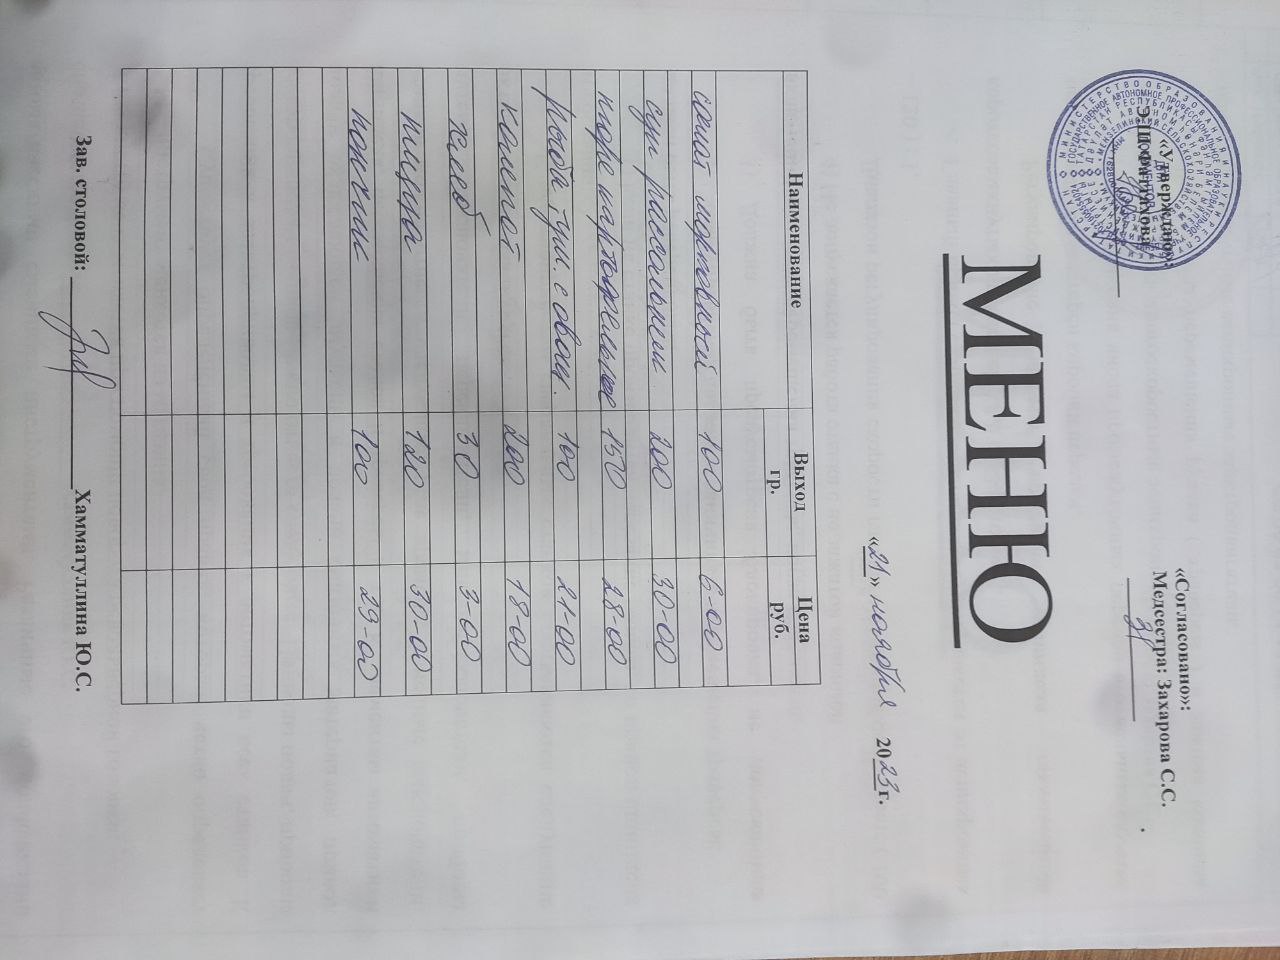 «Утверждаю»:
Э.Ш.Фатихова
«Согласовано»:
Медсестра: Захарова С.С.
МЕНЮ
«21» ноября 2023г.
Наименование Выход гр. Цена руб.
салат морковный 100 6-00
суп рассольник 200 30-00
пюре картофельное 150 28-00
рыба туш. с овощ. 100 21-00
компот 200 18-00
хлеб 30 3-00
пицца 120 30-00
пончик 100 29-00
Зав. столовой: Хамматуллина Ю.С.